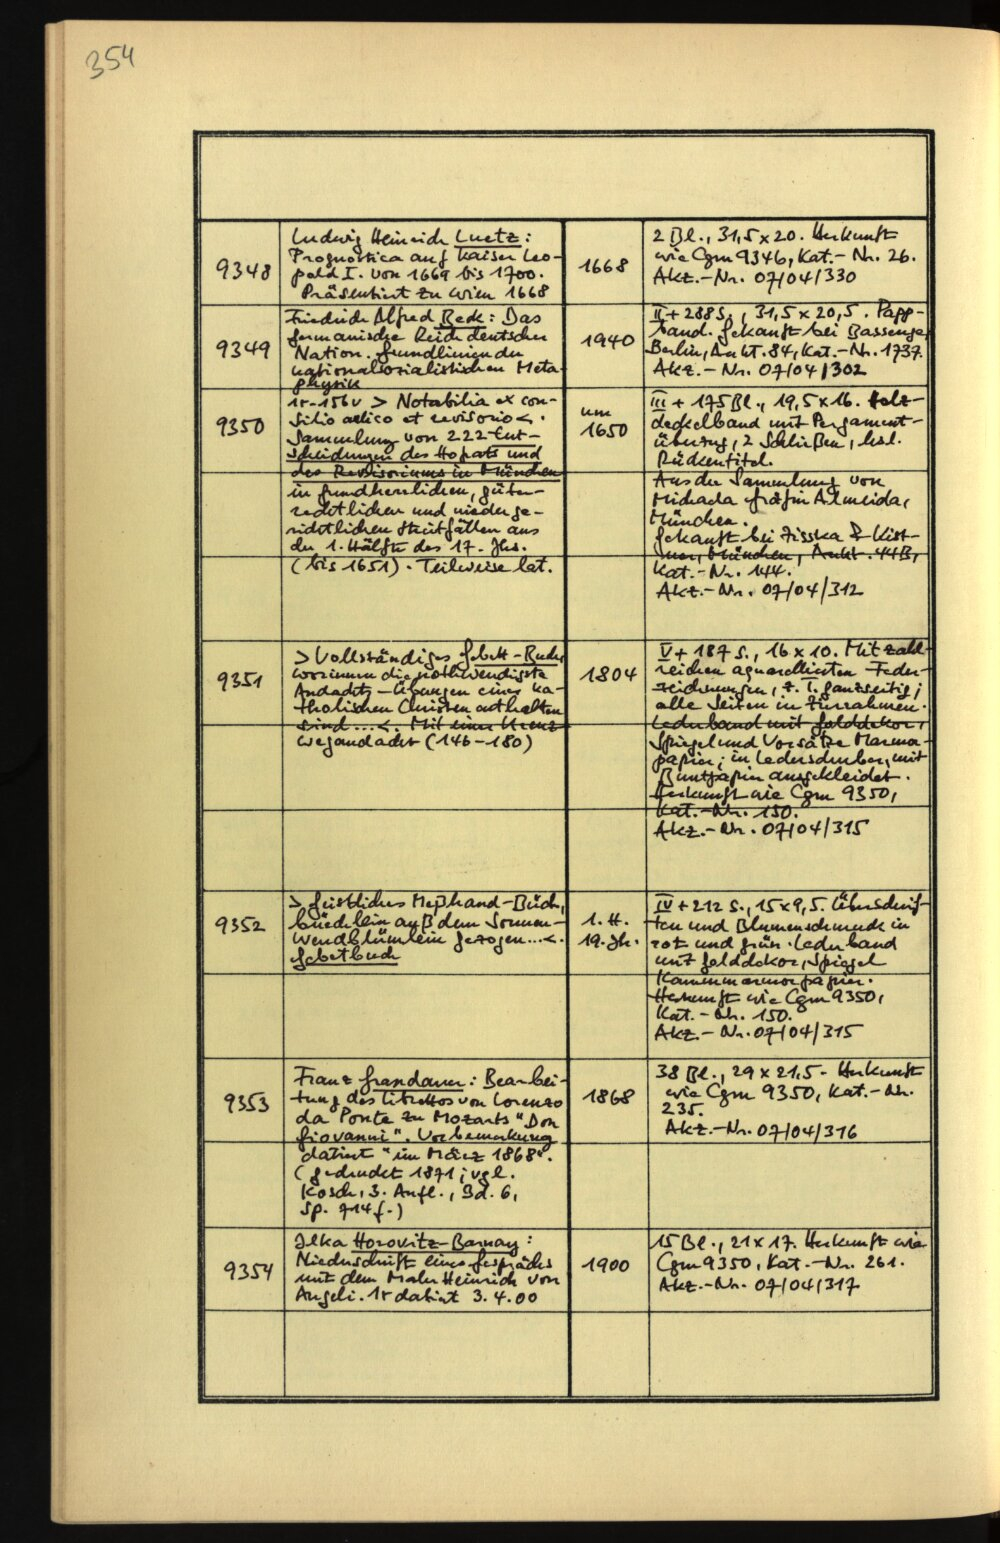 354
9348
Ludwig Heinrich Luetz:
Prognostica auf Kaiser Leo-
pold I. von 1669 bis 1700.
Präsentiert zu Wien 1668
1668
2 Bl., 31,5 x 20. Herkunft
wie Cgm 9346, Kat.-Nr. 26.
Akz.-Nr. 07/04/330
9349
Friedrich Alfred Beck: Das
germanische Reich deutscher
Nation. Grundlinien der
nationalsozialistischen Meta-
physik
1940
II + 288 S., 31,5 x 20,5. Papp-
band. Gekauft bei Bassenge,
Berlin, Aukt. 84, Kat.-Nr. 1737.
Akz.-Nr. 07/04/302
9350
1r-156v > Notabilia ex con-
silio aulico et revisorio <.
Sammlung von 222 Ent-
scheidungen des Hofrats und
des Revisoriums in München
in grundherrlichen, güter-
rechtlichen und niederge-
richtlichen Streitfällen aus
der 1. Hälfte des 17. Jhs.
(bis 1651). Teilweise lat.
um
1650
III + 175 Bl., 19,5 x 16. Holz-
deckelband mit Pergament-
überzug, 2 Schließen, hsl.
Rückentitel.
Aus der Sammlung von
Michaela Gräfin Almeida,
München.
Gekauft bei Zisska & Kist-
ner, München, Aukt. 44B,
Kat.-Nr. 144.
Akz.-Nr. 07/04/312
9351
> Vollständiges Gebett-Buch,
worinnen die nothwendigste
Andachts-Übungen eines ka-
tholischen Christen enthalten
sind ... <. Mit einer Kreuz-
wegandacht (146-180)
1804
V + 187 S., 16 x 10. Mit zahl-
reichen aquarellierten Feder-
zeichnungen, z. T. ganzseitig;
alle Seiten in Zierrahmen.
Lederband mit Golddekor,
Spiegel und Vorsätze Marmor-
papier; in Lederschuber, mit
Buntpapier ausgekleidet.
Herkunft wie Cgm 9350,
Kat.-Nr. 150.
Akz.-Nr. 07/04/315
9352
> Geistliches Meßhand-Büch,
büechlein auß dem Sonnen-
wendblümlein gezogen ... <.
Gebetbuch
1. H.
19. Jh.
IV + 212 S., 15 x 9,5. Überschrif-
ten und Blumenschmuck in
rot und grün. Lederband
mit Golddekor, Spiegel
Kammmarmorpapier.
Herkunft wie Cgm 9350,
Kat.-Nr. 150.
Akz.-Nr. 07/04/315
9353
Franz Grandaur: Bearbei-
tung des Librettos von Lorenzo
da Ponte zu Mozarts "Don
Giovanni". Vorbemerkung
datiert "im März 1868".
(gedruckt 1871; vgl.
Kosch, 3. Aufl., Bd. 6,
Sp. 714 f.)
1868
38 Bl., 29 x 21,5. Herkunft
wie Cgm 9350, Kat.-Nr.
235.
Akz.-Nr. 07/04/316
9354
Ilka Horovitz-Barnay:
Niederschrift eines Gesprächs
mit dem Maler Heinrich von
Angeli. 1r datiert 3.4.00
1900
15 Bl., 21 x 17. Herkunft wie
Cgm 9350, Kat.-Nr. 261.
Akz.-Nr. 07/04/317